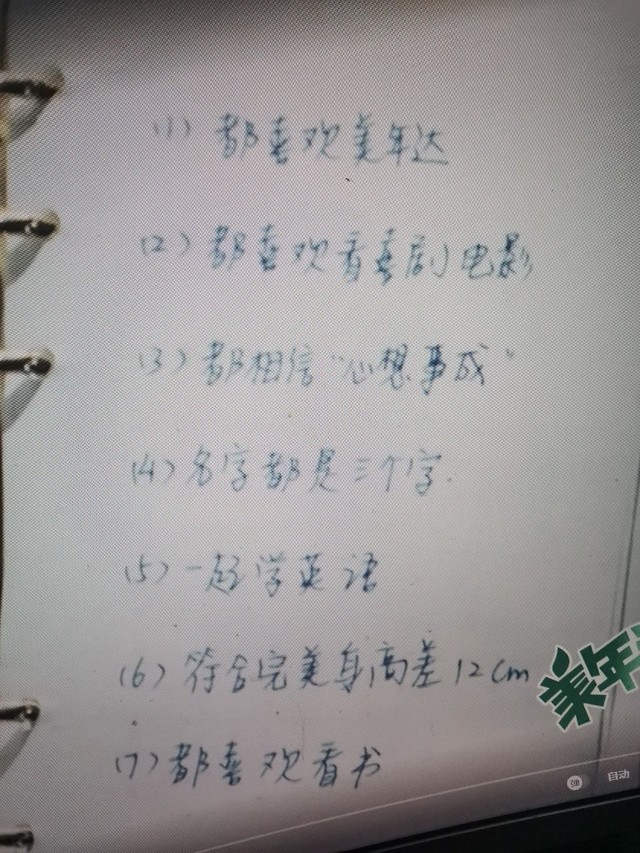 (1) 都喜欢美年达
(2) 都喜欢看喜剧电影
(3) 都相信“心想事成”
(4) 名字都是三个字.
(5) 一起学英语
(6) 符合完美身高差12cm
美年
(7) 都喜欢看书
弹 自动